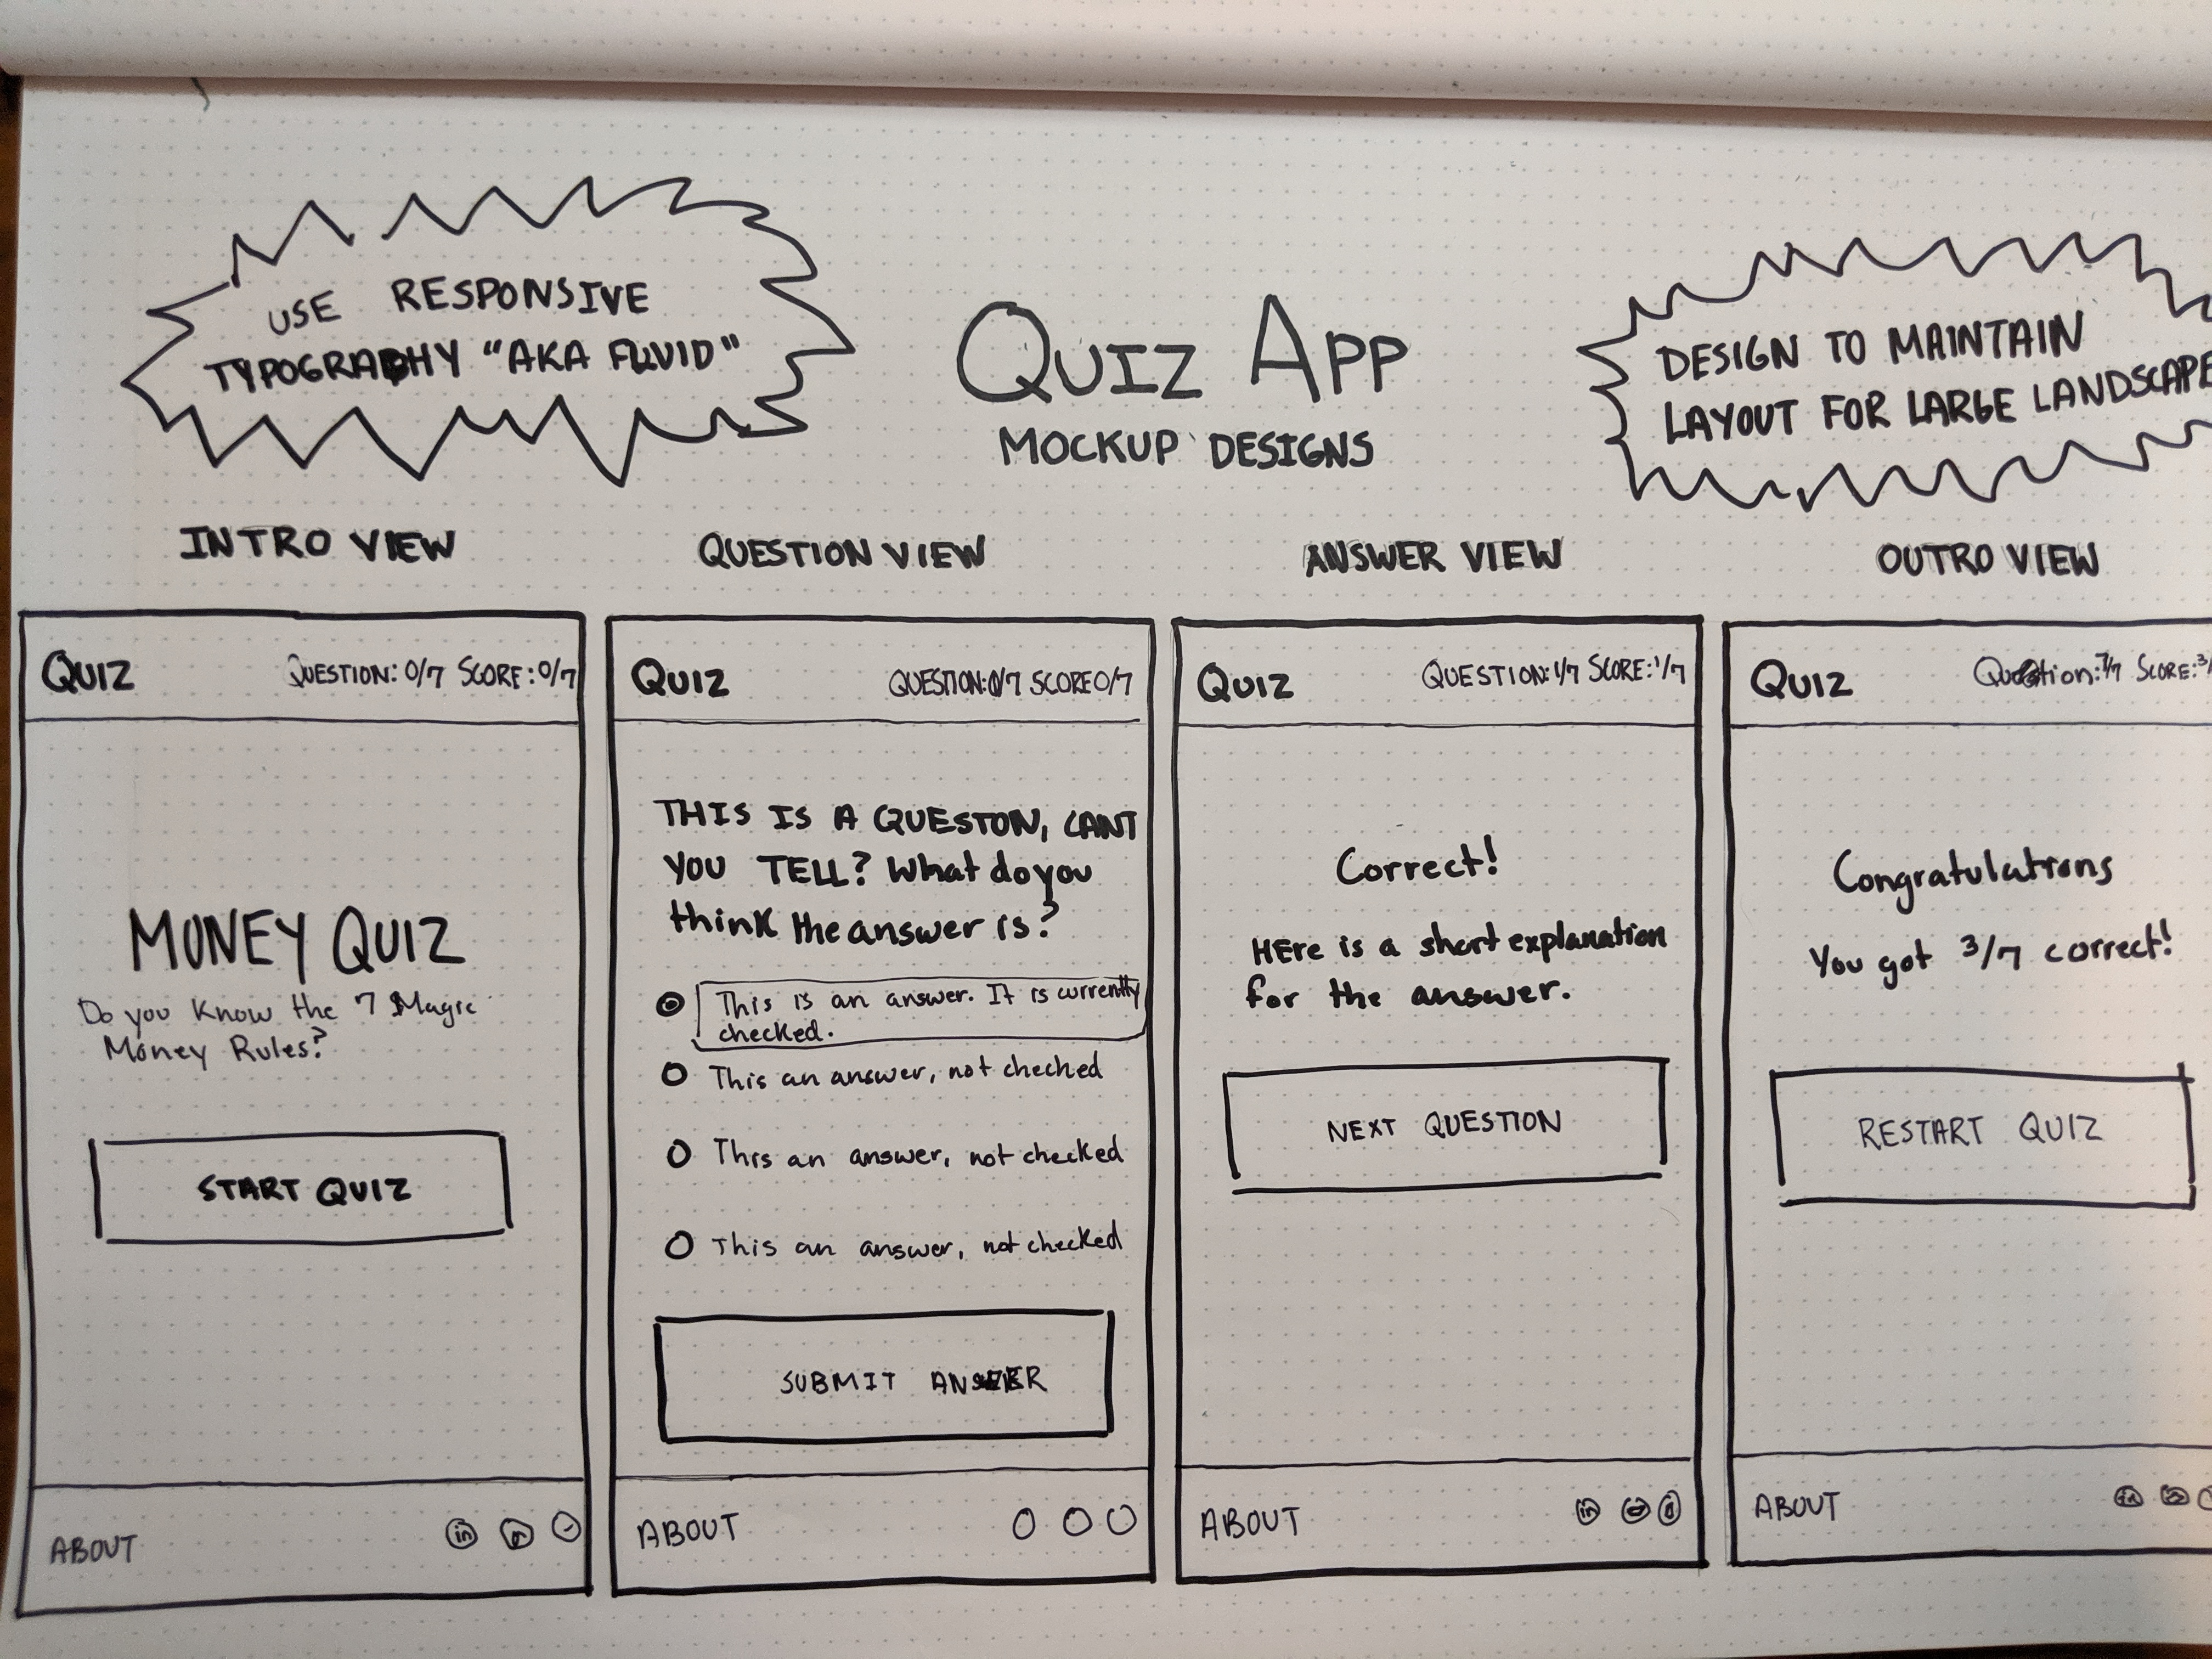 USE RESPONSIVE
TYPOGRAPHY "AKA FLUID"
QUIZ APP
MOCKUP DESIGNS
DESIGN TO MAINTAIN
LAYOUT FOR LARGE LANDSCAPE
INTRO VIEW
QUIZ QUESTION: 0/7 SCORE: 0/7
MONEY QUIZ
Do you Know the 7 Magic
Money Rules?
START QUIZ
ABOUT in
QUESTION VIEW
QUIZ QUESTION: 0/7 SCORE 0/7
THIS IS A QUESTON, CANT
YOU TELL? What do you
think the answer is?
This is an answer. It is currently
checked.
This an answer, not checked
This an answer, not checked
This an answer, not checked
SUBMIT ANSWER
ABOUT
ANSWER VIEW
QUIZ QUESTION: 1/7 SCORE: 1/7
Correct!
HEre is a short explanation
for the answer.
NEXT QUESTION
ABOUT in
OUTRO VIEW
QUIZ Question: 7/7 SCORE: 3/
Congratulations
You got 3/7 correct!
RESTART QUIZ
ABOUT in